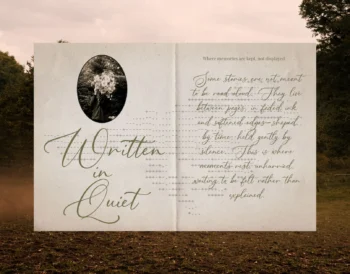 Written
in
Quiet
Where memories are kept, not displayed.
Some stories are not meant
to be read aloud. They live
between pages, in faded ink
and softened edges—shaped
by time, held gently by
silence. This is where
moments rest unhurried,
waiting to be felt rather than
explained.